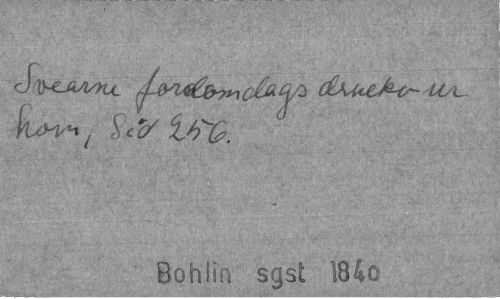 Svearne fordomdags drucko ur
horn, Sid 256.
Bohlin sgst 1840